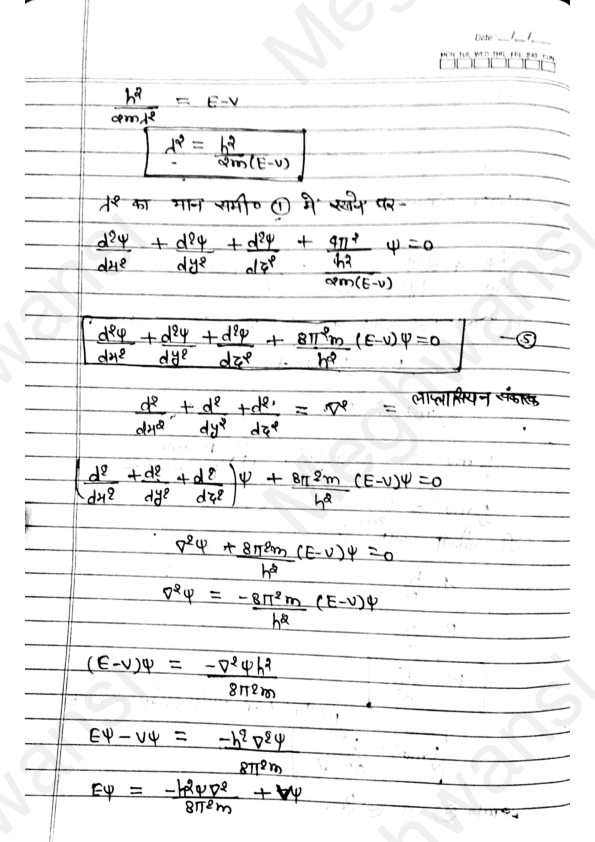 Date __/__/__
MON TUE WED THU FRI SAT SUN
h²/2mλ² = E-V
λ² = h²/2m(E-V)
λ² का मान समी० ① में रखने पर-
d²ψ/dx² + d²ψ/dy² + d²ψ/dz² + 4π²/(h²/2m(E-V)) ψ = 0
d²ψ/dx² + d²ψ/dy² + d²ψ/dz² + 8π²m/h² (E-V)ψ = 0 —⑤
d²/dx² + d²/dy² + d²/dz² = ∇² = लाप्लासियन संकारक
(d²/dx² + d²/dy² + d²/dz²)ψ + 8π²m/h² (E-V)ψ = 0
∇²ψ + 8π²m/h² (E-V)ψ = 0
∇²ψ = -8π²m/h² (E-V)ψ
(E-V)ψ = -∇²ψh²/8π²m
Eψ - Vψ = -h²∇²ψ/8π²m
Eψ = -h²ψ∇²/8π²m + Vψ
Meghwansi